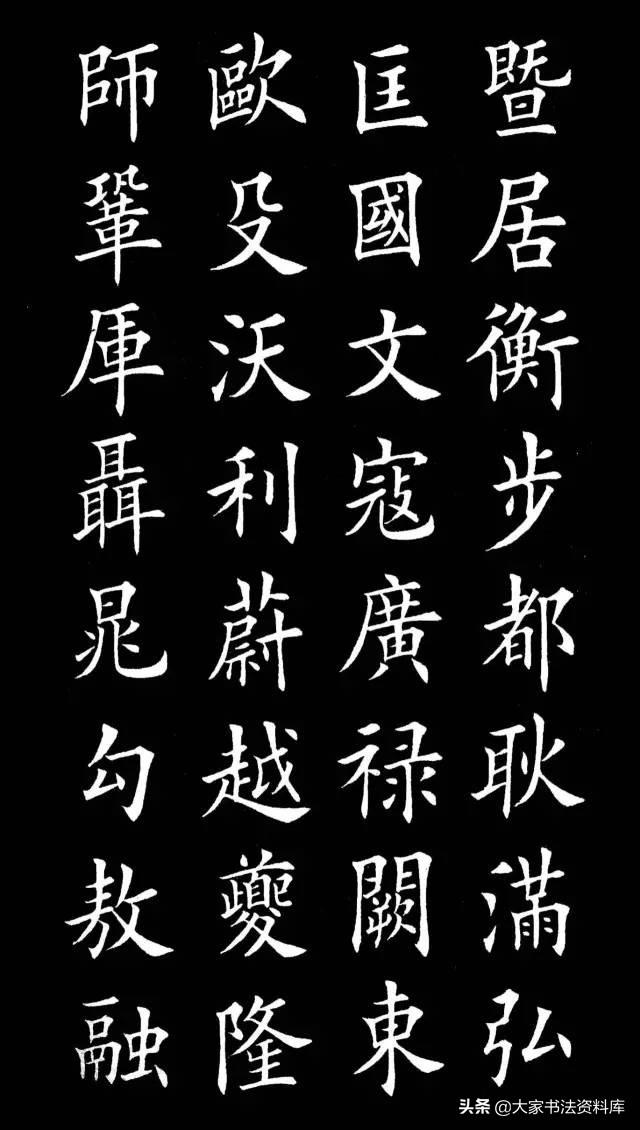 暨居衡步都耿滿弘
匡國文寇廣禄闕東
歐殳沃利蔚越夔隆
師鞏厙聶晁勾敖融
头条 @大家书法资料库